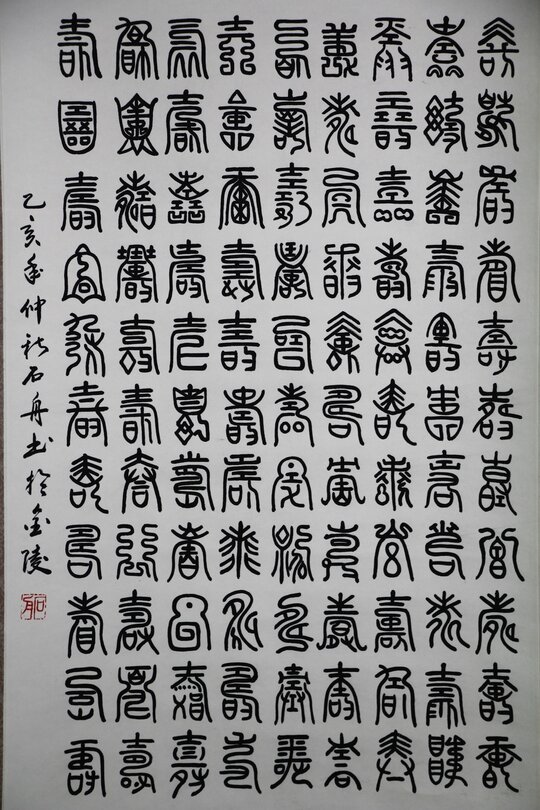 壽壽壽壽壽壽壽壽壽壽壽
壽壽壽壽壽壽壽壽壽壽壽
壽壽壽壽壽壽壽壽壽壽壽
壽壽壽壽壽壽壽壽壽壽壽
壽壽壽壽壽壽壽壽壽壽壽
壽壽壽壽壽壽壽壽壽壽壽
壽壽壽壽壽壽壽壽壽壽壽
壽壽壽壽壽壽壽壽壽壽壽
壽壽壽壽壽壽壽壽壽壽壽
乙亥年仲秋石舟书於金陵